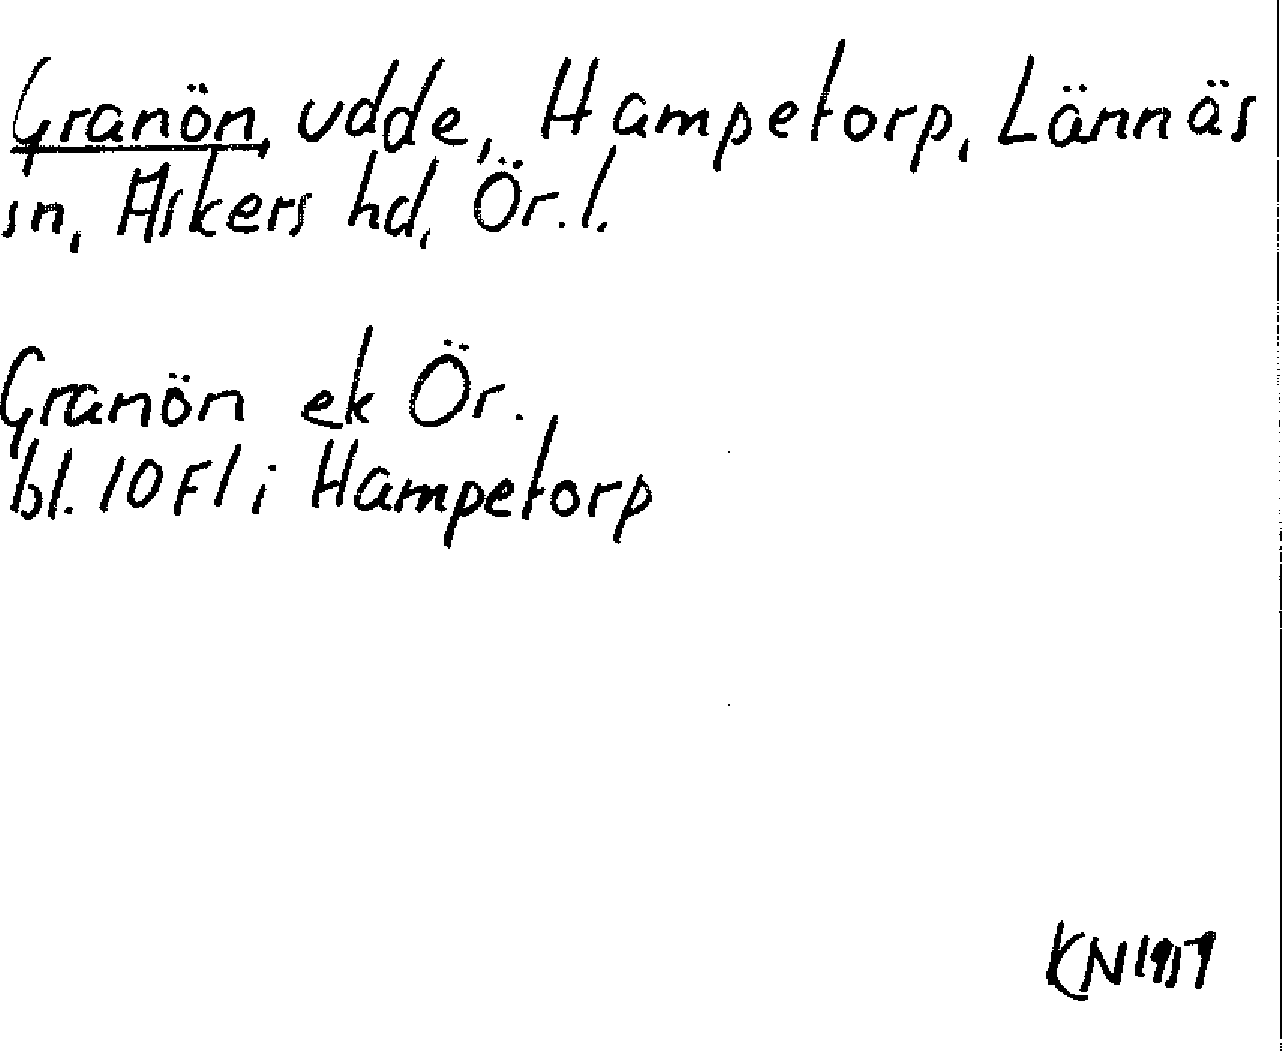 Granön, udde, Hampetorp, Lännäs
sn, Askers hd, Ör. l.
Granön ek Ör.
bl. 10 F1 i Hampetorp
KN